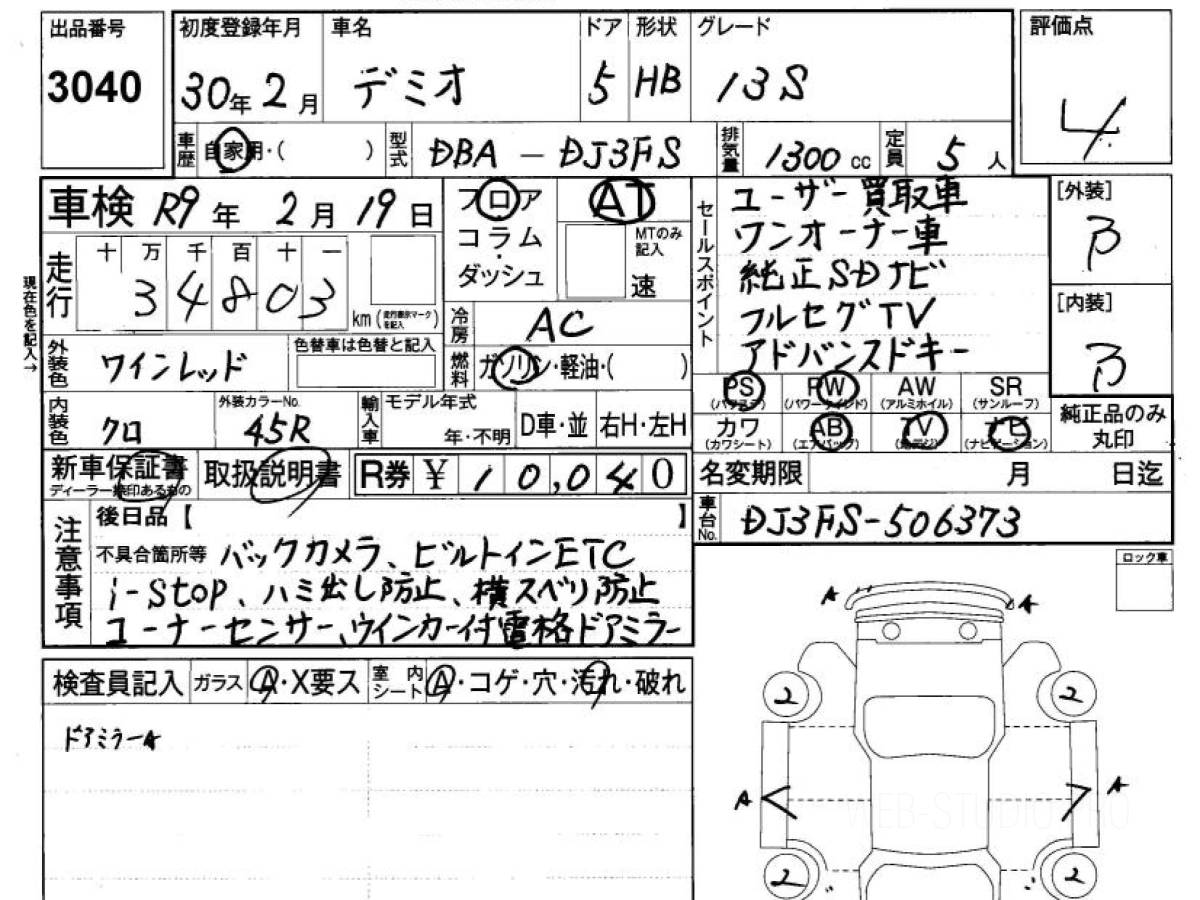 出品番号 初度登録年月 車名 ドア 形状 グレード 評価点
3040 30年 2月 デミオ 5 HB 13S 4
車歴 自家用・( ) 型式 DBA - DJ3FS 排気量 1300 cc 定員 5人
車検 R9年 2月 19日
フロア
コラム
・
ダッシュ
AT
MTのみ記入
速
走行 十 万 千 百 十 一
3 4 8 0 3 km (走行表示マークを記入)
現在色を記入→
外装色 ワインレッド 色替車は色替と記入
冷房 AC
燃料 ガソリン・軽油・( )
内装色 クロ 外装カラーNo. 45R
輸入車 モデル年式 年・不明 D車・並 右H・左H
セールスポイント
ユーザー買取車
ワンオーナー車
純正SDナビ
フルセグTV
アドバンスドキー
[外装]
B
[内装]
B
PS (パワステ) PW (パワーウインド) AW (アルミホイル) SR (サンルーフ)
カワ (カワシート) AB (エアバック) TV (地デジ) ナビ (ナビゲーション)
純正品のみ
丸印
新車保証書 取扱説明書 R券 ¥ 10,040
ディーラー捺印あるもの
名変期限 月 日迄
車台No. DJ3FS-506373
注意事項
後日品【 】
不具合箇所等 バックカメラ、ビルトインETC
i-stop、ハミ出し防止、横スベリ防止
コーナーセンサー、ウインカー付電格ドアミラー
ロック車
検査員記入 ガラス A・X要ス 室内シート A・コゲ・穴・汚れ・破れ
ドアミラーA
A A
2 2
A A
WEB-STUDIO PRO
2 2